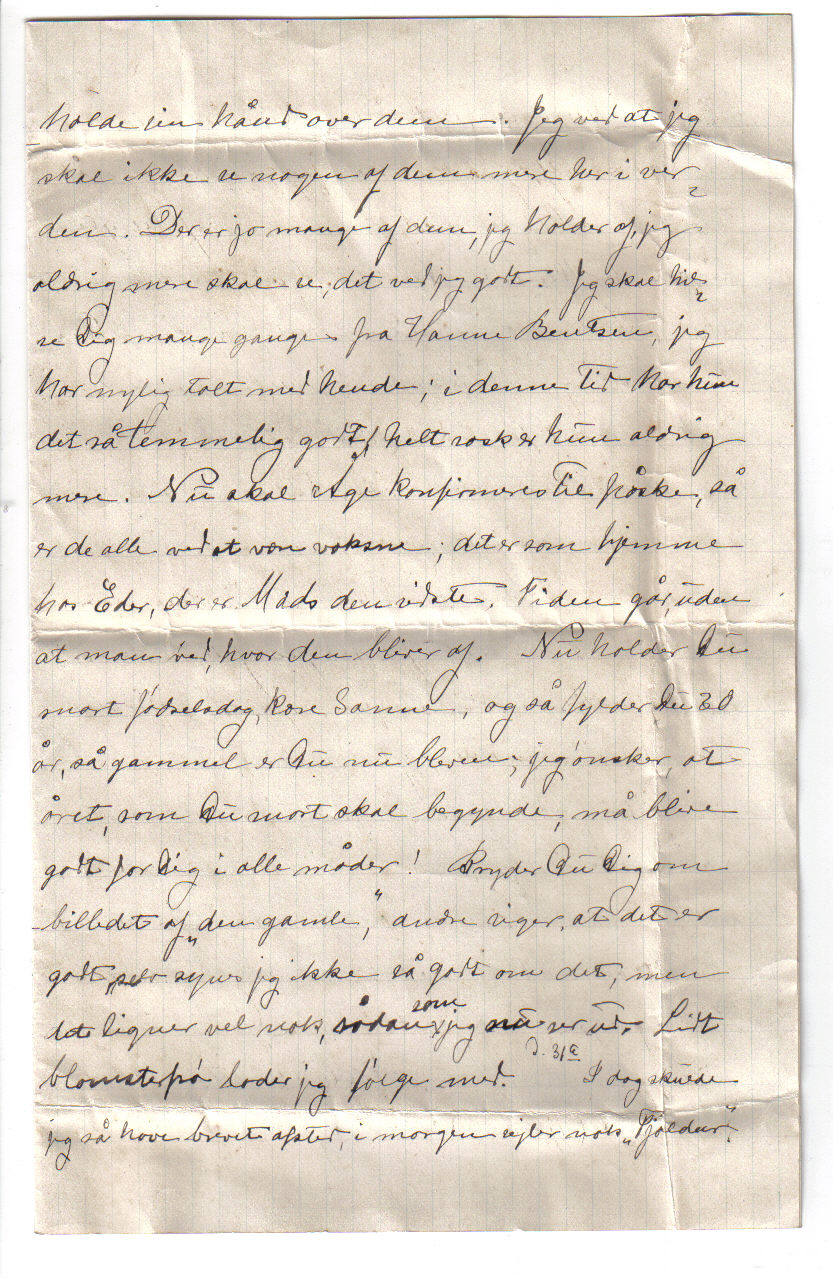 holde sin hånd over dem. Jeg ved at jeg
skal ikke se nogen af dem mere her i ver-
den. Der er jo mange af dem, jeg holder af, jeg
aldrig mere skal se, det ved jeg godt. Jeg skal hil-
se Dig mange gange fra Hanne Bentsen, jeg
har nylig talt med hende; i denne tid har hun
det så temmelig godt, helt rask er hun aldrig
mere. Nu skal Åge konfirmeres til påske, så
er de alle ved at være voksne; det er som hjemme
hos Eder, der er Mads den sidste. Tiden går, uden
at man ved, hvor den bliver af. Nu holder Du
snart fødselsdag, kære Sanne, og så fylder Du 30
år, så gammel er Du nu bleven; jeg ønsker, at
året, som Du snart skal begynde, må blive
godt for Dig i alle måder! Bryder Du Dig om
billedet af „den gamle", andre siger, at det er
godt, selv synes jeg ikke så godt om det, men
det ligner vel nok, sådan som jeg nu ser ud. Lidt
blomsterfrø lader jeg følge med. d. 31te I dag skulde
jeg så have brevet afsted, i morgen sejler nok „Tjaldur".